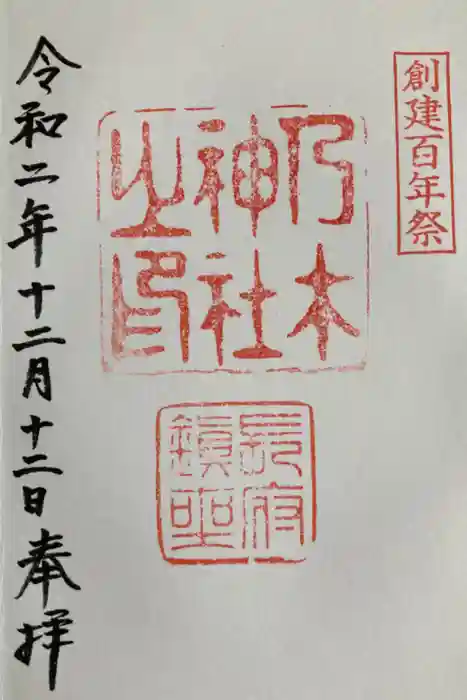 創建百年祭
乃木
神社
之印
長府
鎮聖
令和二年十二月十二日奉拝